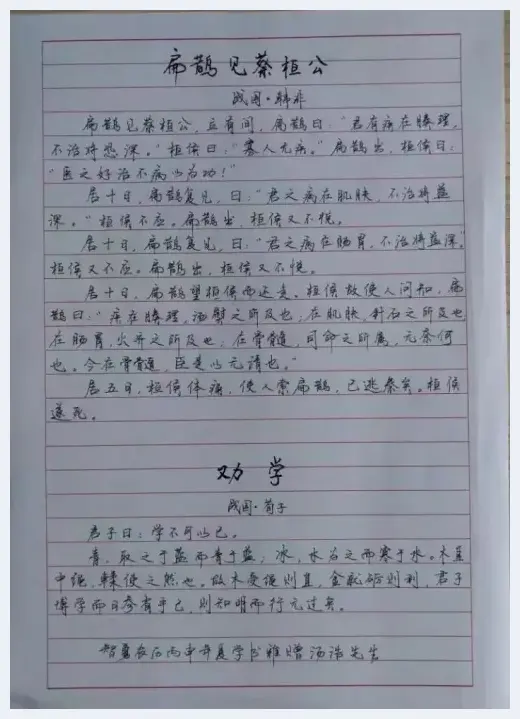 扁鹊见蔡桓公
战国·韩非
扁鹊见蔡桓公，立有间，扁鹊曰：“君有病在腠理，
不治将恐深。”桓侯曰：“寡人无疾。”扁鹊出，桓侯曰：
“医之好治不病以为功！”
居十日，扁鹊复见，曰：“君之病在肌肤，不治将益
深。”桓侯不应。扁鹊出，桓侯又不悦。
居十日，扁鹊复见，曰：“君之病在肠胃，不治将益深”
桓侯又不应。扁鹊出，桓侯又不悦。
居十日，扁鹊望桓侯而还走。桓侯故使人问知，扁
鹊曰：“疾在腠理，汤熨之所及也；在肌肤，针石之所及也
在肠胃，火齐之所及也；在骨髓，司命之所属，无奈何
也。今在骨髓，臣是以无请也。”
居五日，桓侯体痛，使人索扁鹊，已逃秦矣。桓侯
遂死。
劝学
战国·荀子
君子曰：学不可以已。
青，取之于蓝而青于蓝；冰，水为之而寒于水。木直
中绳，輮使之然也。故木受绳则直，金就砺则利，君子
博学而日参省乎己，则知明而行无过矣。
智勇农历丙申年夏学书雅赠汤浩先生